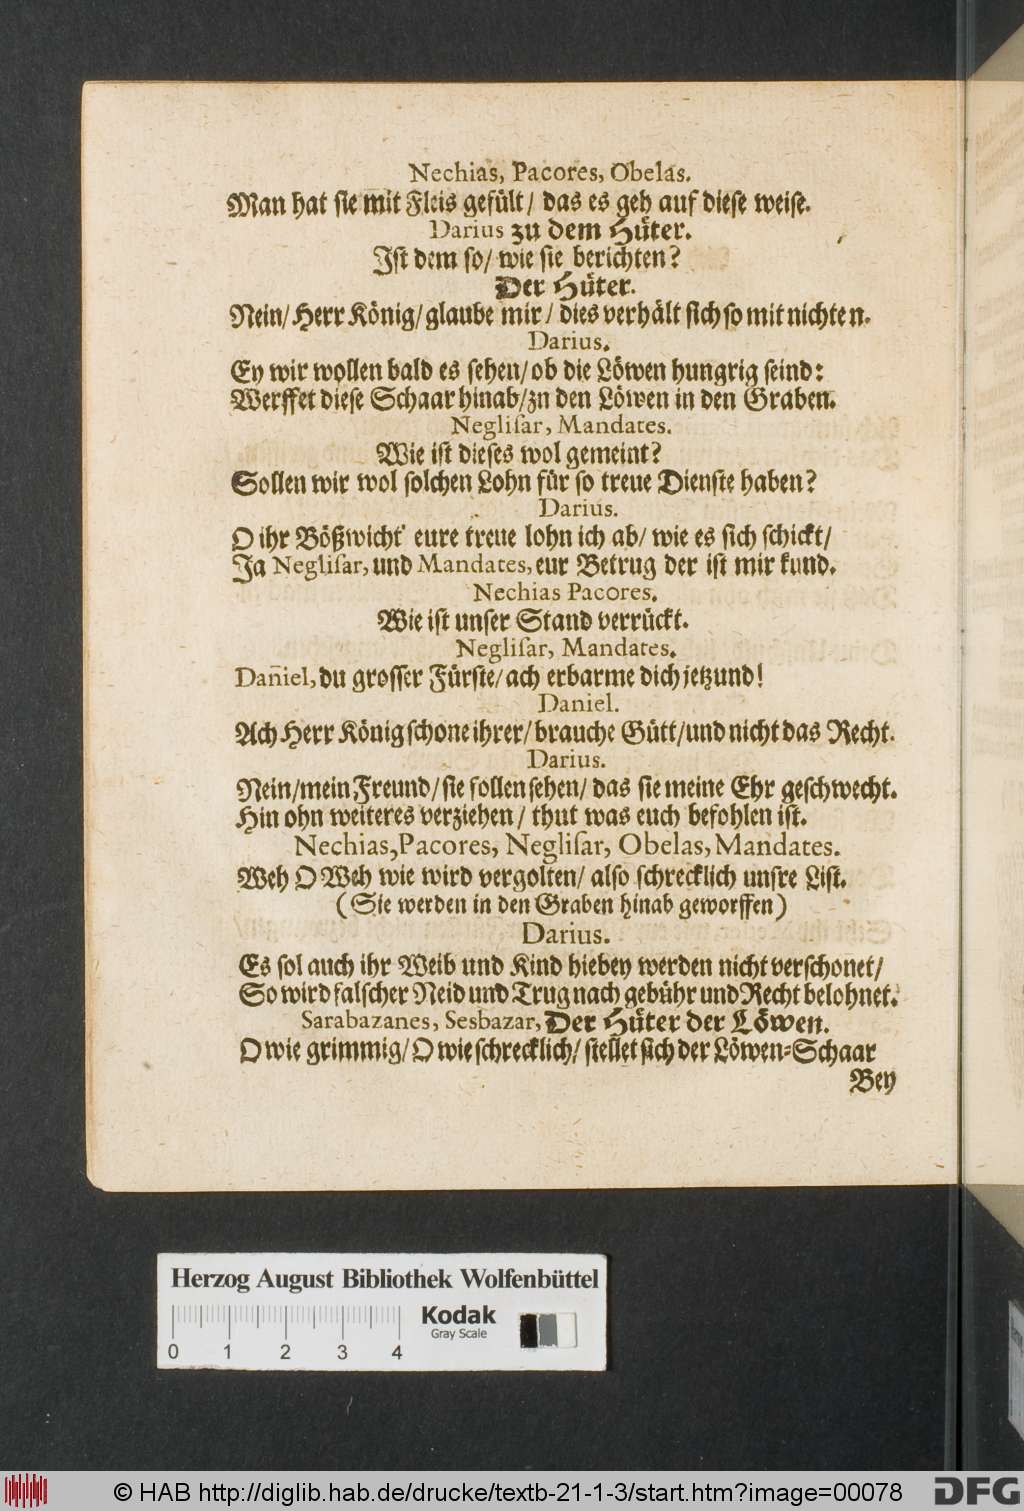 Nechias, Pacores, Obelas.
Man hat sie mit Fleis gefült/ das es geh auf diese weise.
Darius zu dem Hüter.
Ist dem so/ wie sie berichten?
Der Hüter.
Nein/ Herr König/ glaube mir/ dies verhält sich so mit nichten.
Darius.
Ey wir wollen bald es sehen/ ob die Löwen hungrig seind:
Werffet diese Schaar hinab/ zn den Löwen in den Graben.
Neglisar, Mandates.
Wie ist dieses wol gemeint?
Sollen wir wol solchen Lohn für so treue Dienste haben?
Darius.
O ihr Bößwicht' eure treue lohn ich ab/ wie es sich schickt/
Ja Neglisar, und Mandates, eur Betrug der ist mir kund.
Nechias Pacores.
Wie ist unser Stand verrückt.
Neglisar, Mandates.
Daniel, du grosser Fürste/ ach erbarme dich jetzund!
Daniel.
Ach Herr König schone ihrer/ brauche Gütt/ und nicht das Recht.
Darius.
Nein/ mein Freund/ sie sollen sehen/ das sie meine Ehr geschwecht.
Hin ohn weiteres verziehen/ thut was euch befohlen ist.
Nechias, Pacores, Neglisar, Obelas, Mandates.
Weh O Weh wie wird vergolten/ also schrecklich unsre List.
(Sie werden in den Graben hinab geworffen)
Darius.
Es sol auch ihr Weib und Kind hiebey werden nicht verschonet/
So wird falscher Neid und Trug nach gebühr und Recht belohnet.
Sarabazanes, Sesbazar, Der Hüter der Löwen.
O wie grimmig/ O wie schrecklich/ stellet sich der Löwen-Schaar
Bey
Herzog August Bibliothek Wolfenbüttel
Kodak
Gray Scale
0 1 2 3 4
© HAB http://diglib.hab.de/drucke/textb-21-1-3/start.htm?image=00078
DFG